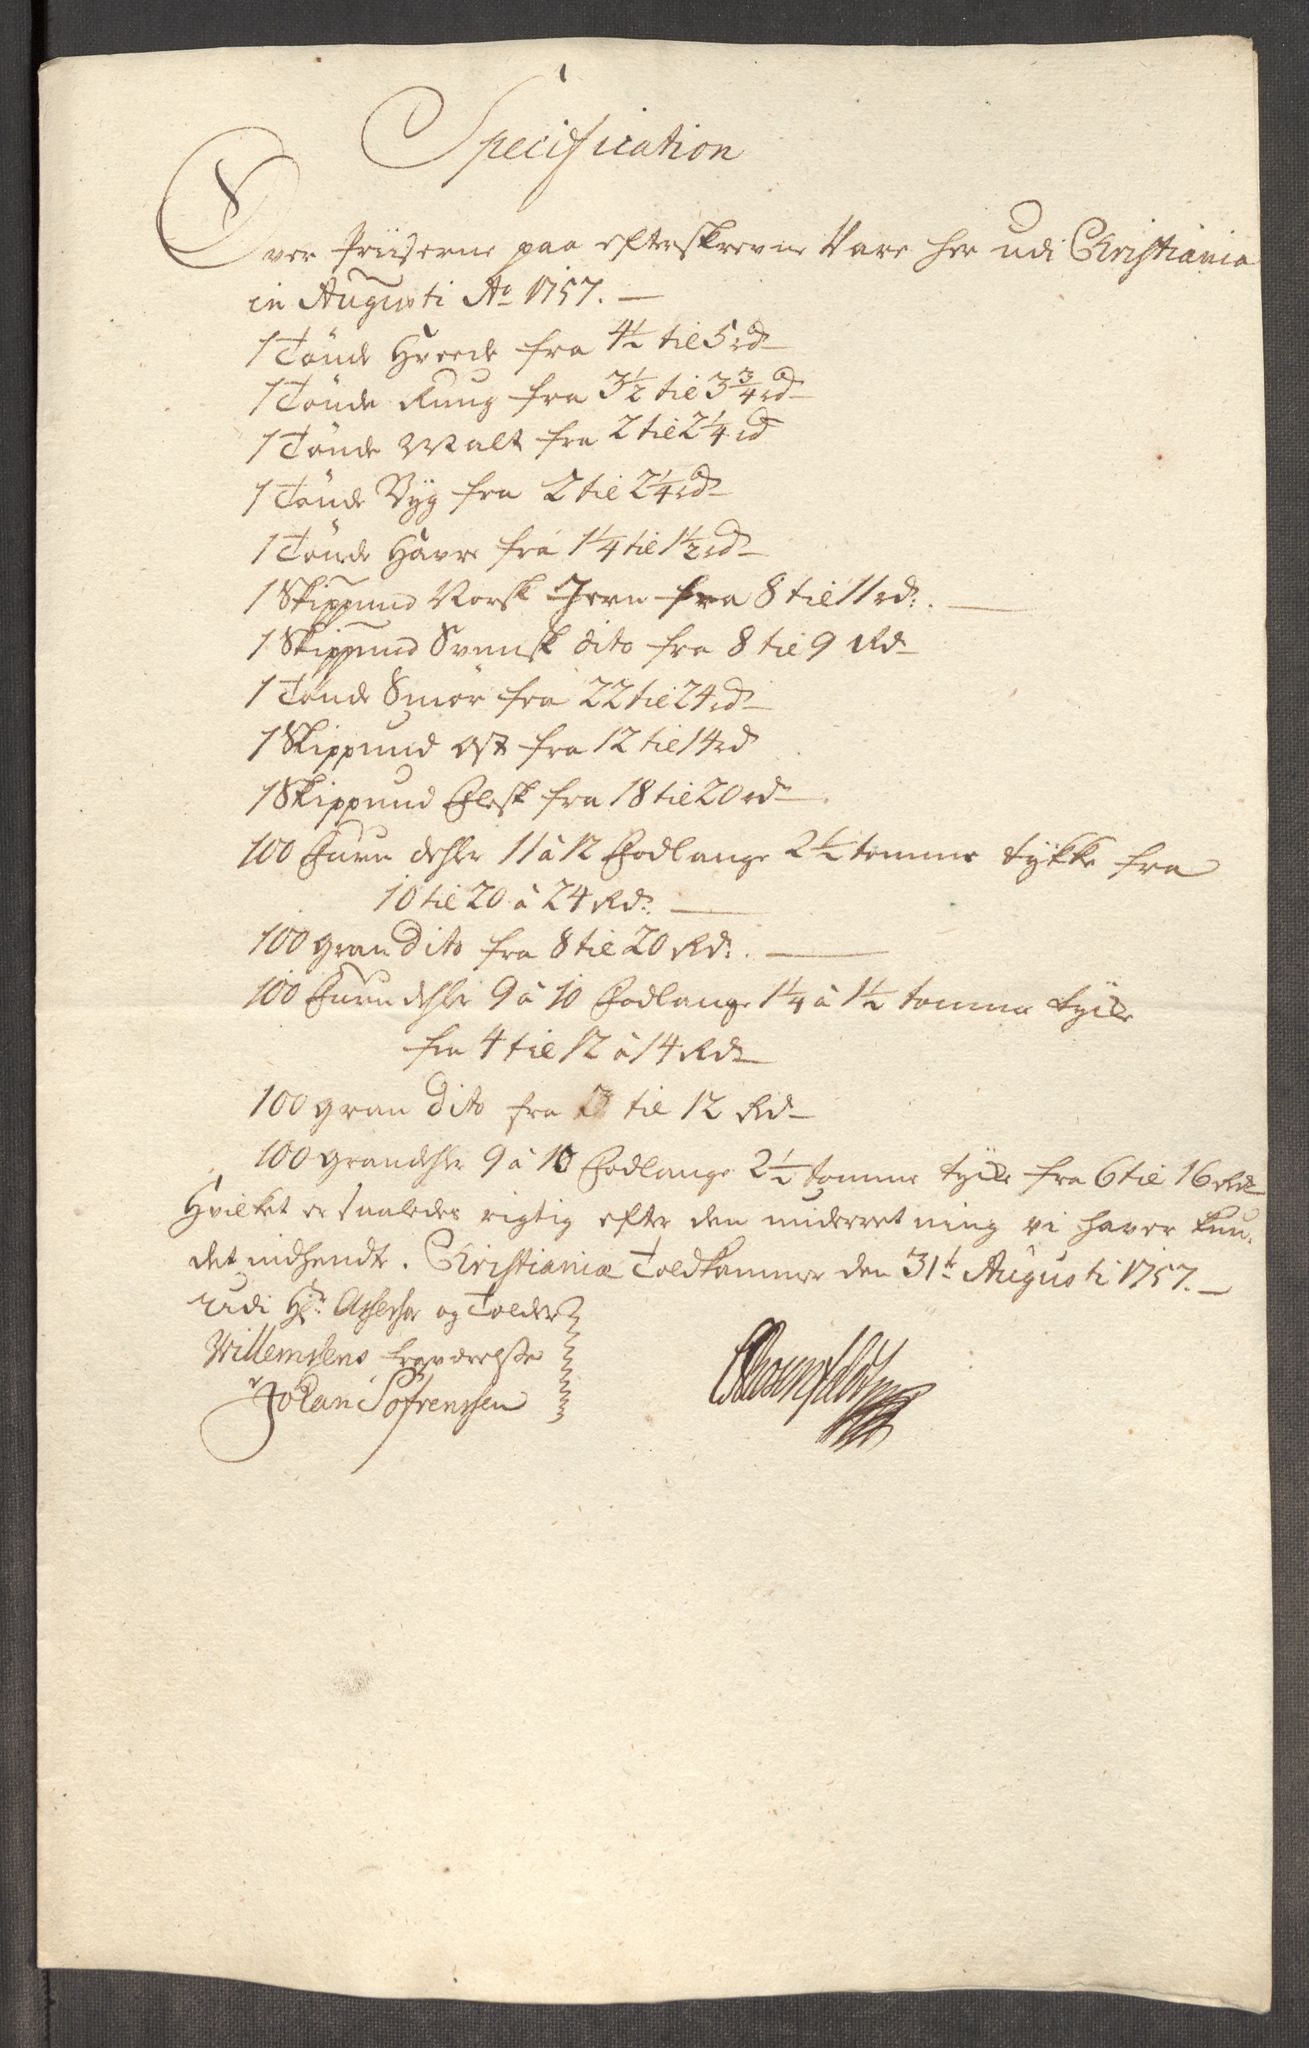 Specification
Over Priiserne paa efterskrevne Vare her udi Christiania
in Augusti Ao 1757. —
1 Tönde Hveede fra 4½ til 5 rd
1 Tönde Rúúg fra 3½ til 3¾ rd
1 Tönde Malt fra 2 til 2¼ rd
1 Tönde Byg fra 2 til 2¼ rd
1 Tönde Havre fra 1¼ til 1½ rd
1 Skippund Norsk Jern fra 8 til 11 rd:. —
1 Skippund Svensk dito fra 8 til 9 Rd
1 Tönde Smör fra 22 til 24 rd
1 Skippund Ost fra 12 til 14 rd
1 Skippund Flesk fra 18 til 20 rd
100 Furu dehler 11 â 12 Fodlange 2½ tomme tykke fra
10 til 20 â 24 Rd: —
100 gran dito fra 8 til 20 Rd:. —
100 Furu dehler 9 â 10 Fodlange 1¼ â 1½ tomme tycke
fra 4 til 12 â 14 Rd
100 gran dito fra til 12 Rd
100 grandehler 9 â 10 Fodlange 2½ tomme tycke fra 6 til 16 Rd
Hvilket er saaledes rigtig efter den underretning vi haver kun-
det indhendt. Christianiæ Toldkammer den 31t Augusti 1757. —
Udi Hr: Assessor og Tolder
Willemsens fraværelse
Johan Söfrenssen